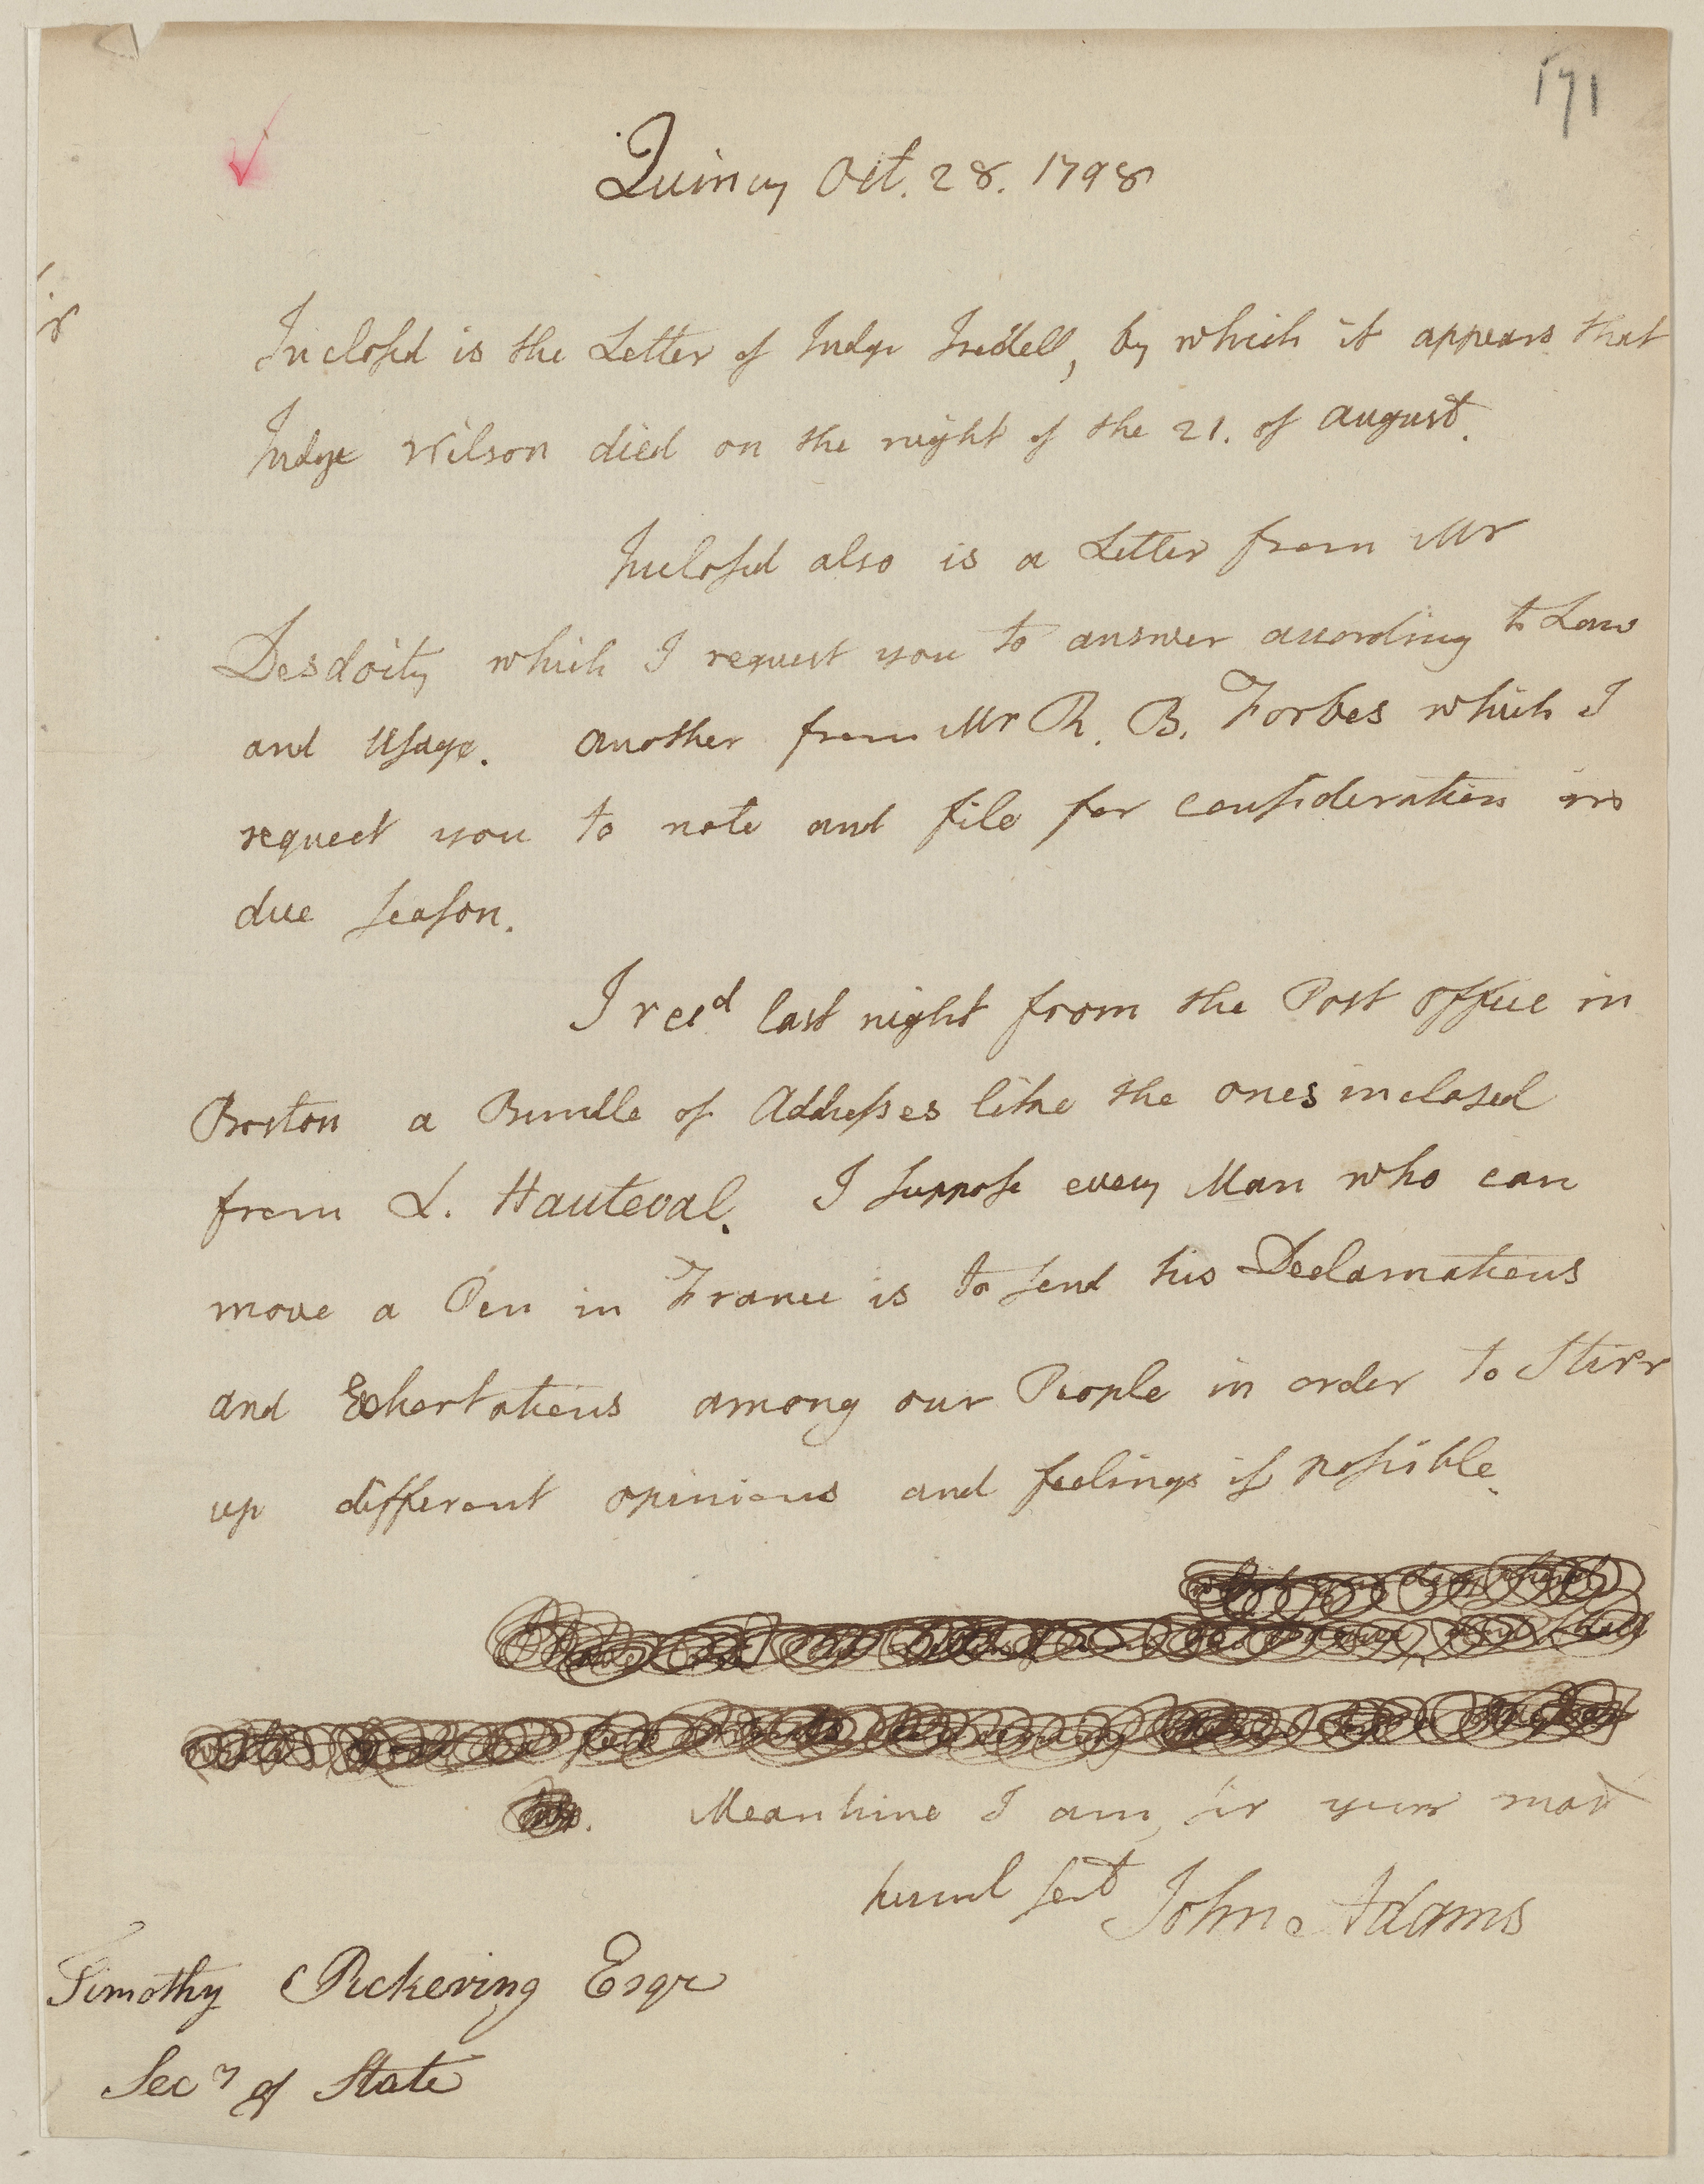 171
Quincy Oct. 28. 1798
Inclosed is the Letter of Judge Iredell, by which it appears that
Judge Wilson died on the night of the 21. of August.
Inclosed also is a Letter from Mr
Desdoity which I request you to answer according to Law
and Usage. Another from Mr R. B. Forbes which I
request you to note and file for consideration in
due season.
I recd last night from the Post office in
Boston a Bundle of Addresses like the ones inclosed
from L. Hauteval. I suppose every Man who can
move a Pen in France is to send his Declamations
and Exhortations among our People in order to Stirr
up different opinions and feelings if possible.
Meantime I am, sir your most
huml sert John Adams
Timothy Pickering Esqr
Secy of State